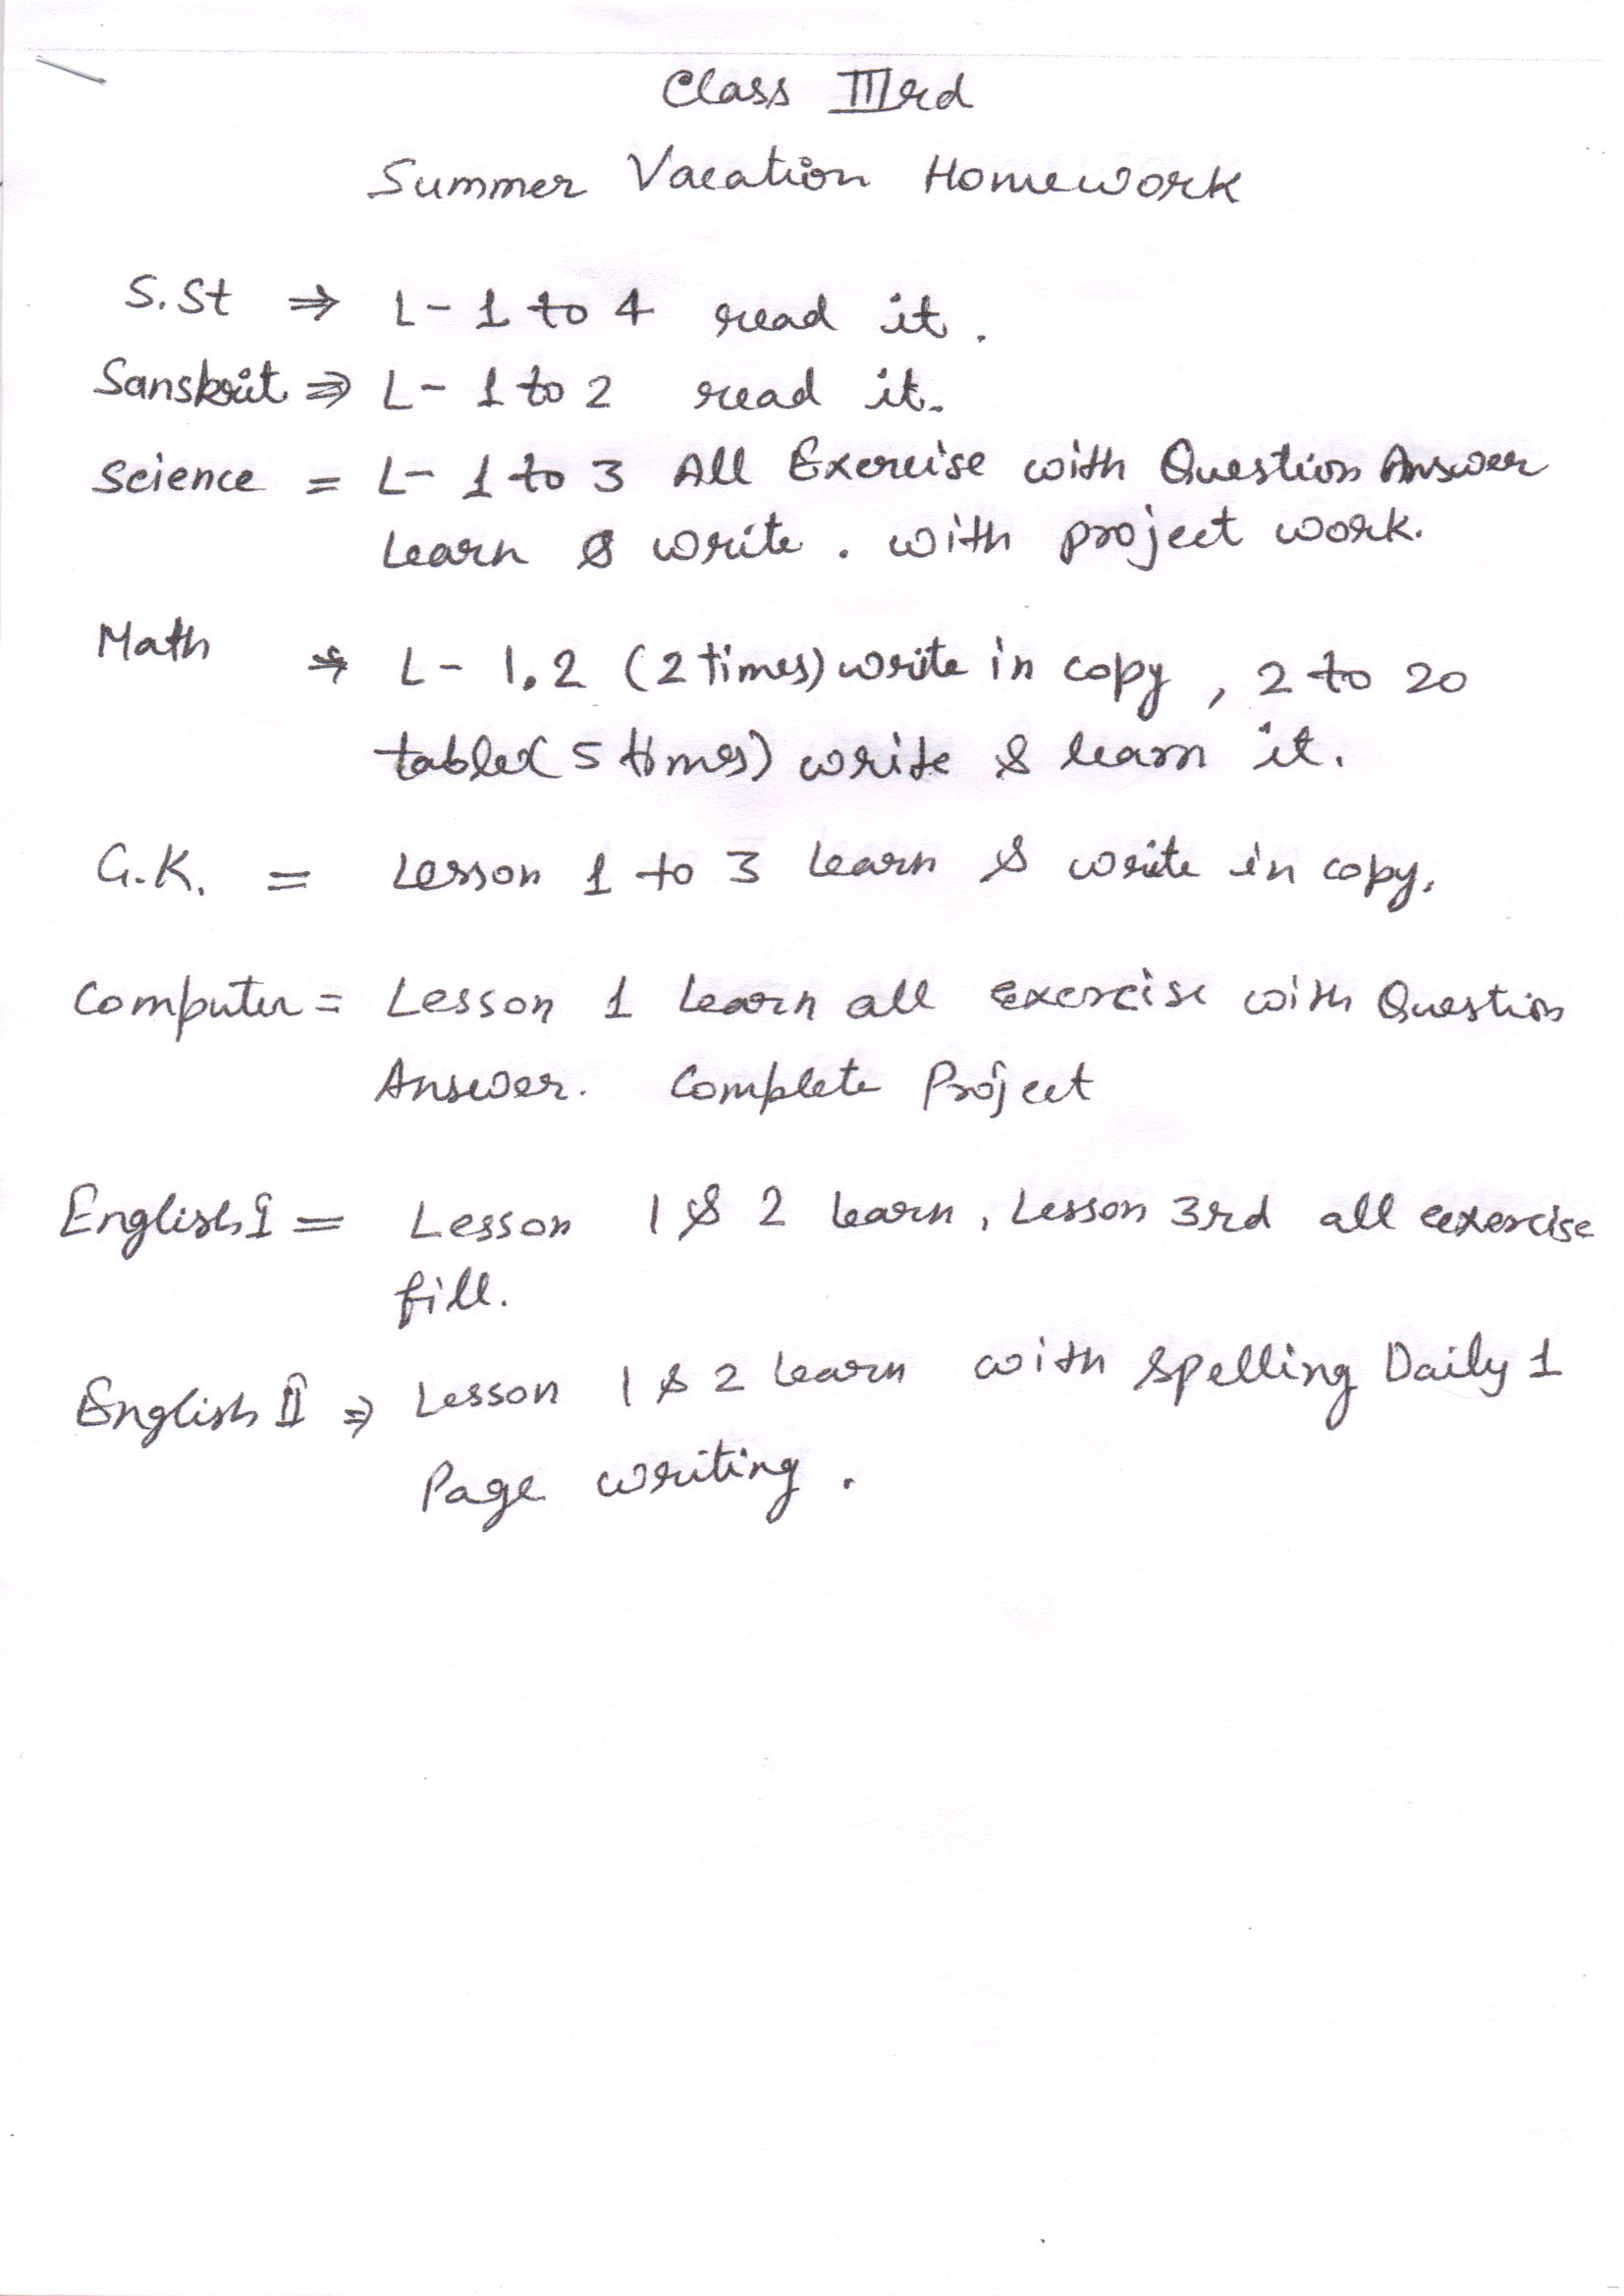 Class IIIrd
Summer Vacation Homework
S.St ⇒ L- 1 to 4 read it.
Sanskrit ⇒ L- 1 to 2 read it.
Science = L- 1 to 3 All Exercise with Question Answer
Learn & write. with project work.
Math ⇒ L- 1,2 (2 times) write in copy, 2 to 20
table (5 times) write & learn it.
G.K. = Lesson 1 to 3 Learn & write in copy.
Computer = Lesson 1 Learn all exercise with Question
Answer. Complete Project
English I = Lesson 1 & 2 learn, Lesson 3rd all exercise
fill.
English II ⇒ Lesson 1 & 2 Learn with spelling Daily 1
Page writing.